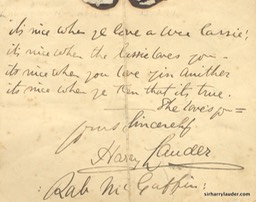 it's nice when ye love a wee lassie!
it's nice when the lassie loves you -
its nice when you love yin anither
its nice when ye ken that its true.
She loves you =
Yours Sincerely
Harry Lauder
: Rab Mc Guffin :
www.sirharrylauder.com